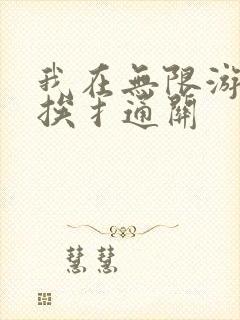 我在無限游
挨扌通關
慧慧